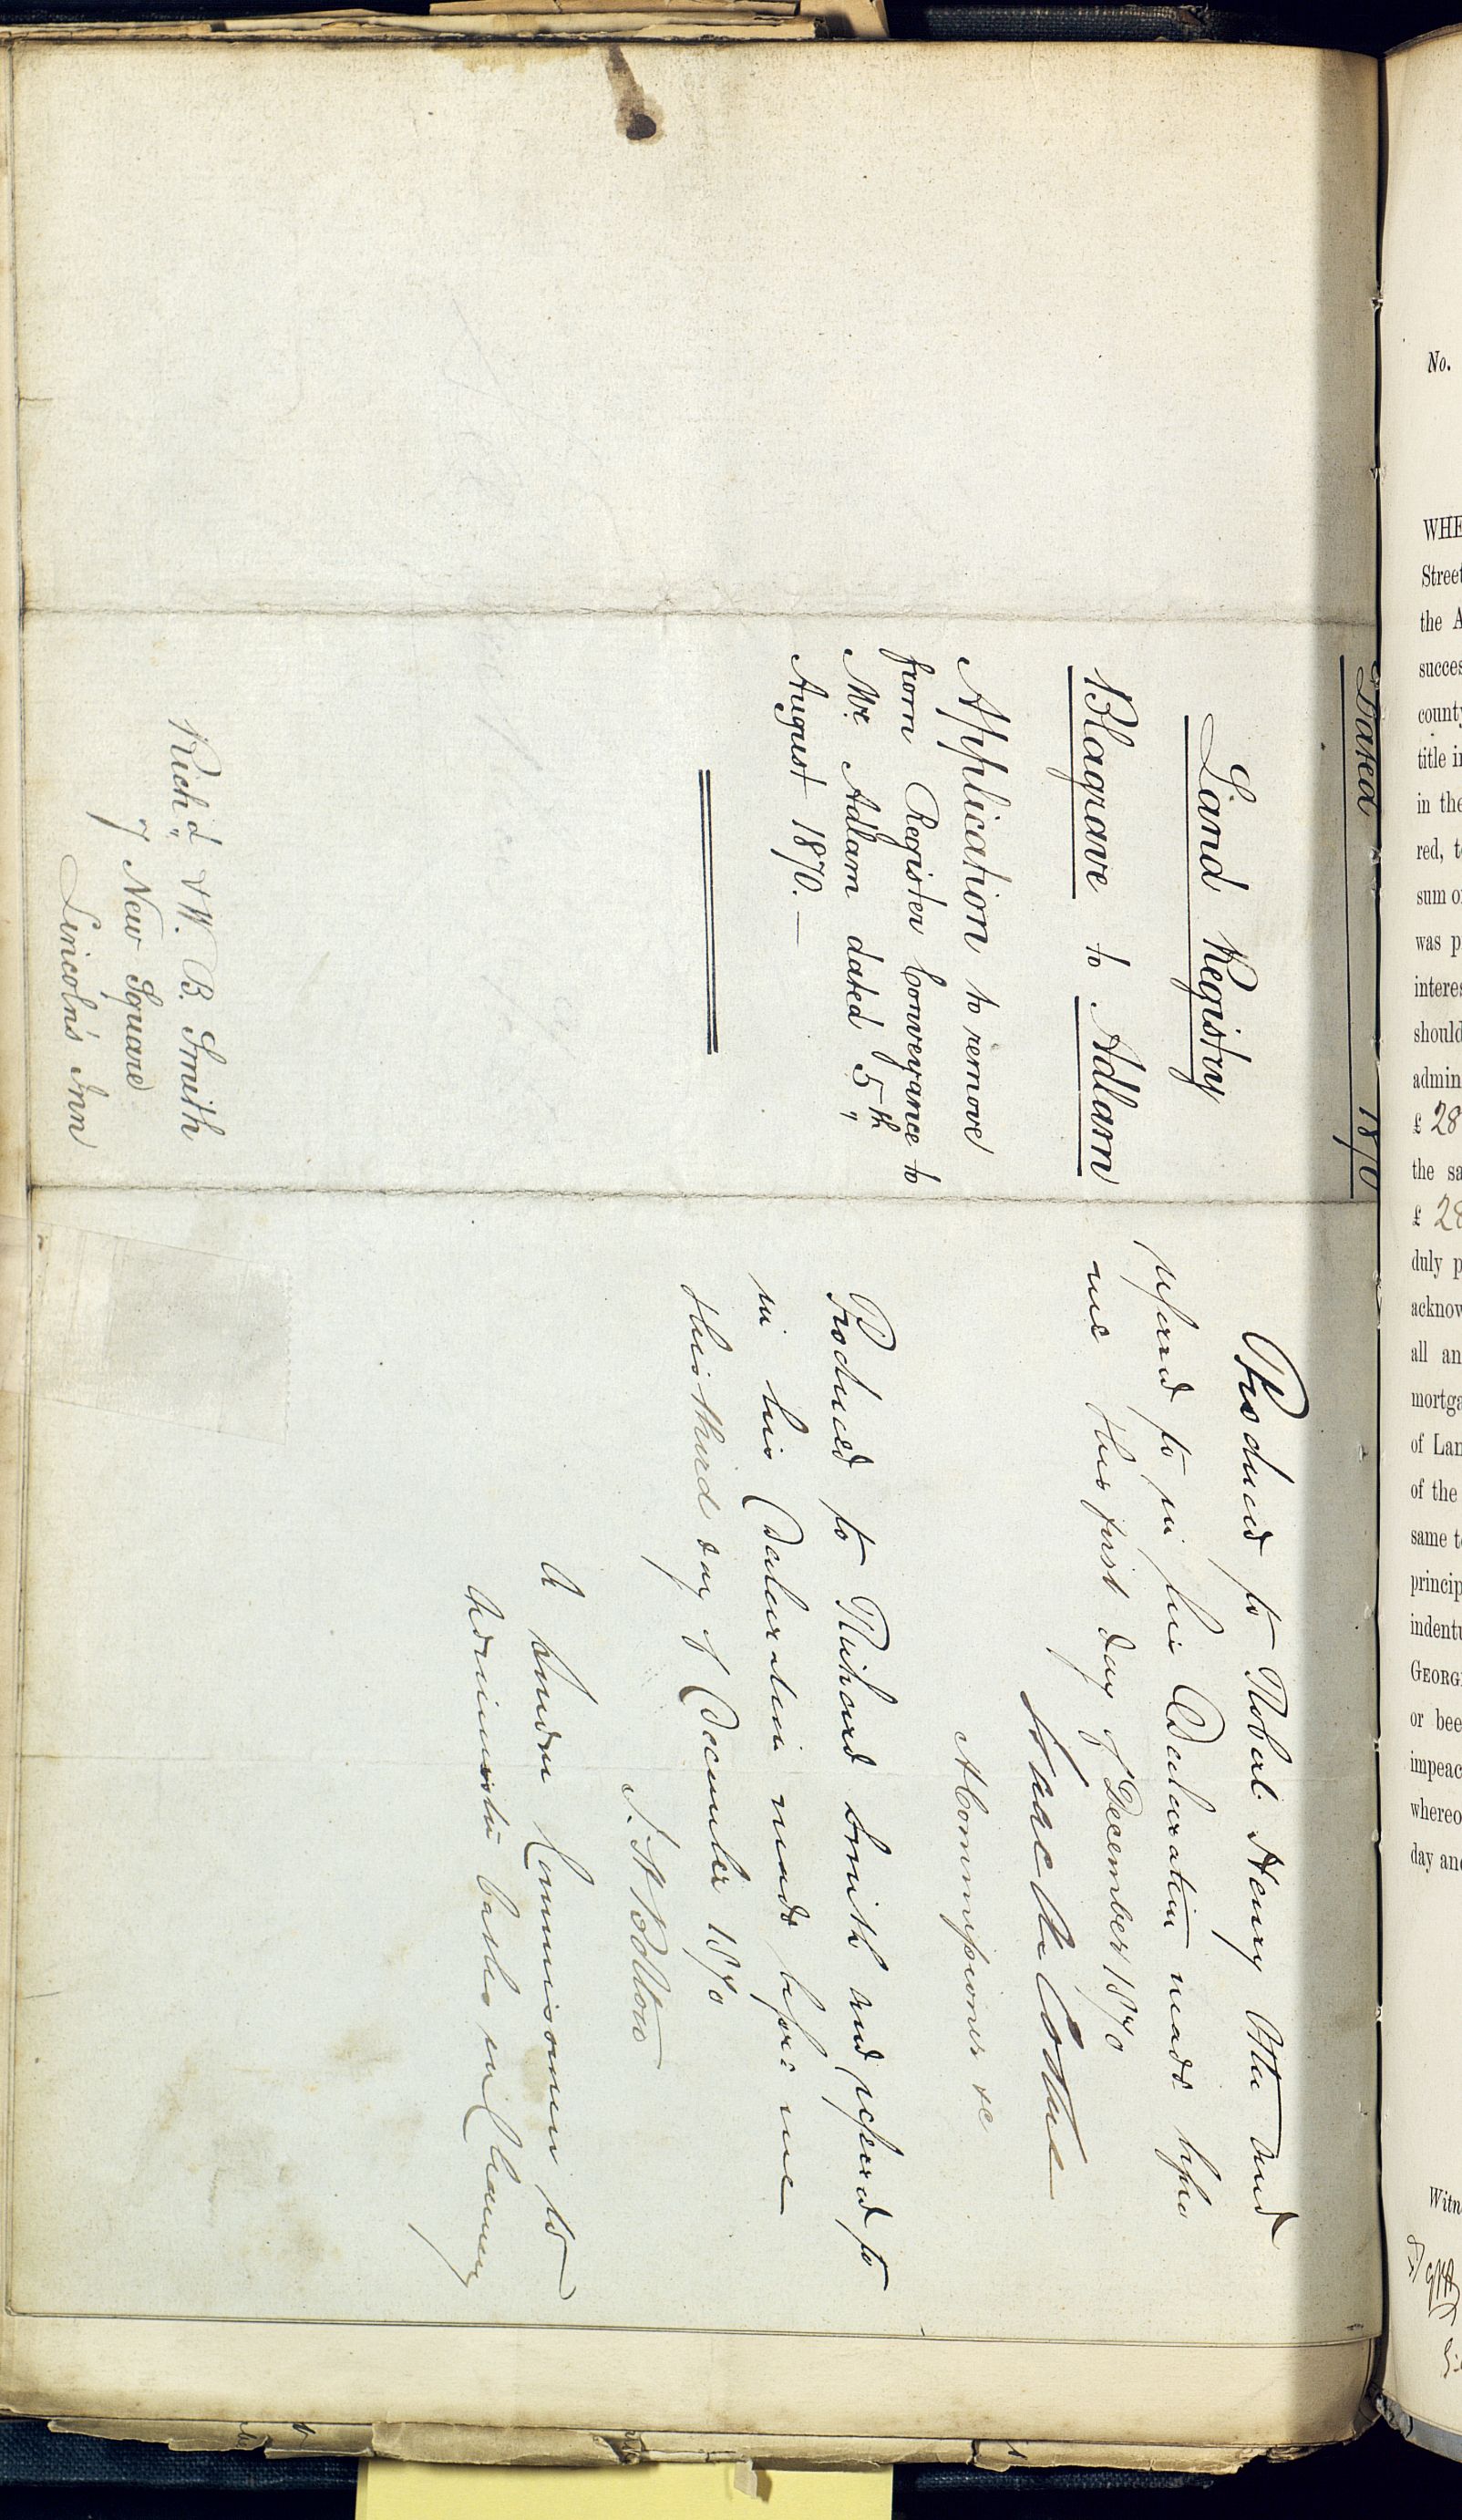 Dated 1870
Land Registry
Blagrave to Adlam
Application to remove
from Register Conveyance to
Mr. Adlam dated 5th
August 1870. —
Richd. & W. B. Smith
7 New Square
Lincoln's Inn
Produced to Robert Henry and
referred to in his Declaration made before
me this first day of December 1870
A Commissioner &c
Produced to Richard Smith and referred to
in his Declaration made before me
this third day of December 1870
A London Commissioner to
administer oaths in Chancery
No.
WHE
Street
the A
succes
county
title i
in the
red, t
sum o
was p
interes
should
admin
£ 28
the sa
£ 28
duly p
acknow
all an
mortga
of Lan
of the
same t
princip
indentu
GEORGE
or bee
impeac
whereo
day and
Witn